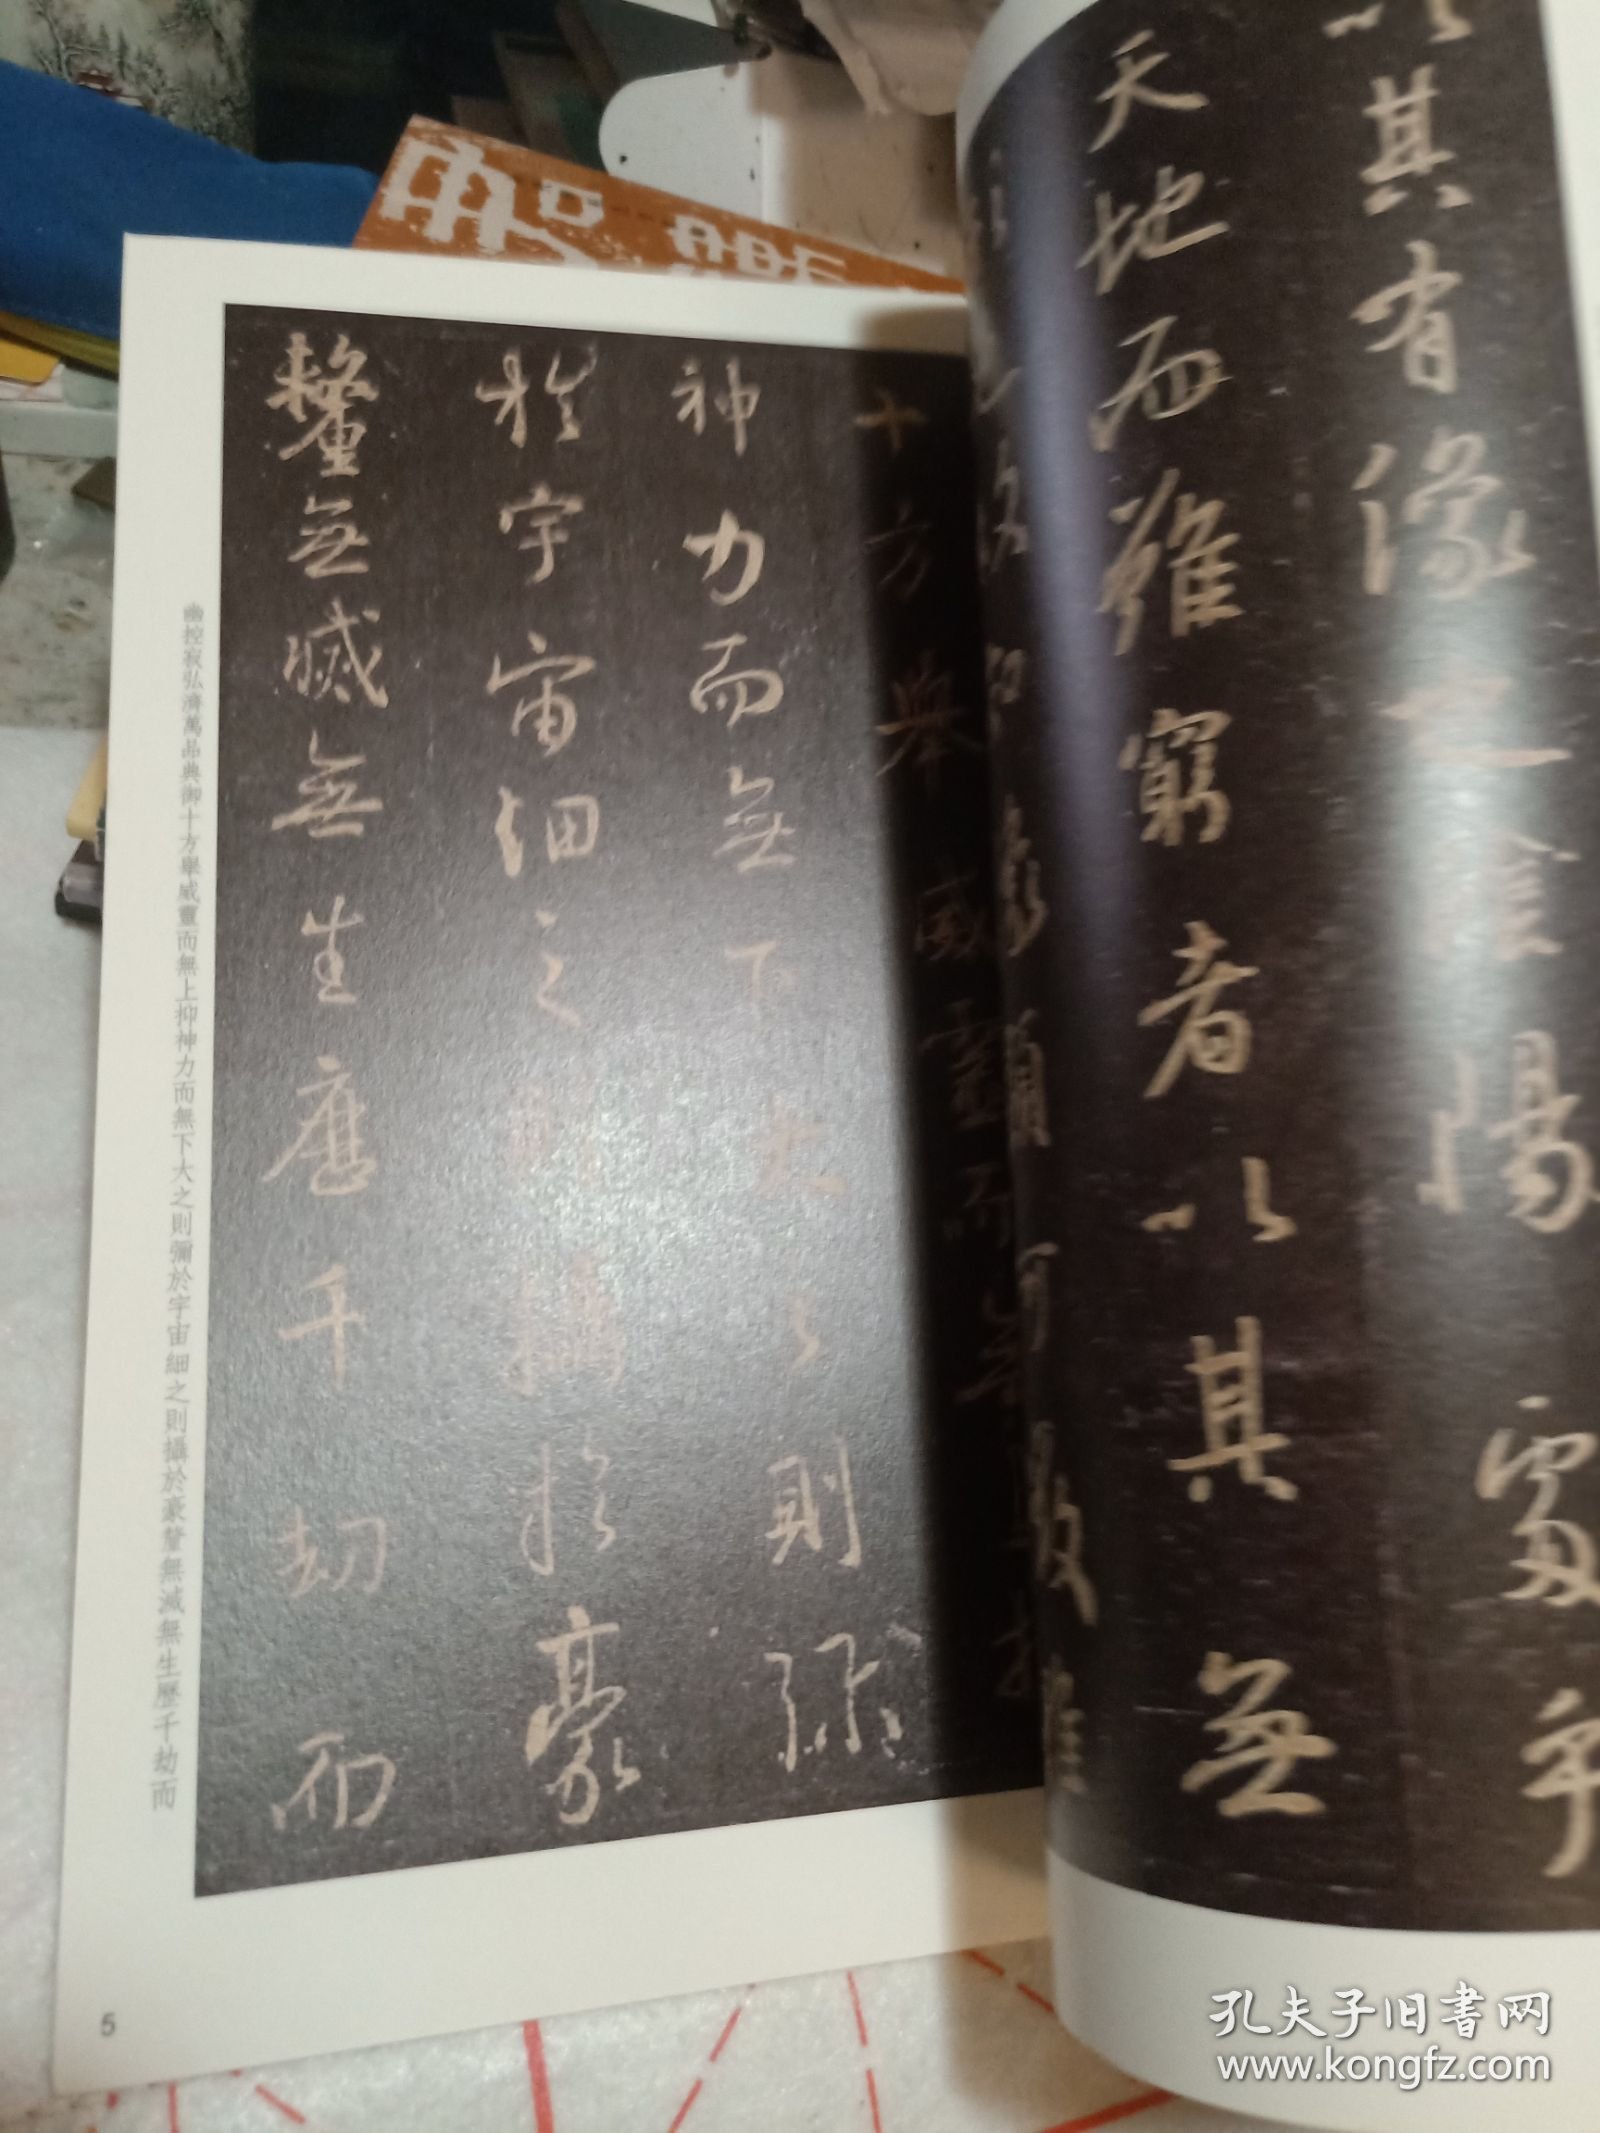 以其有像也陰陽處乎
天地而難窮者以其無
十方舉威靈而無上抑
神力而無下大之則弥
於宇宙細之則攝於豪
釐無滅無生歷千劫而
幽控寂弘濟萬品典御十方舉威靈而無上抑神力而無下大之則彌於宇宙細之則攝於豪釐無滅無生歷千劫而
5
孔夫子旧书网
www.kongfz.com